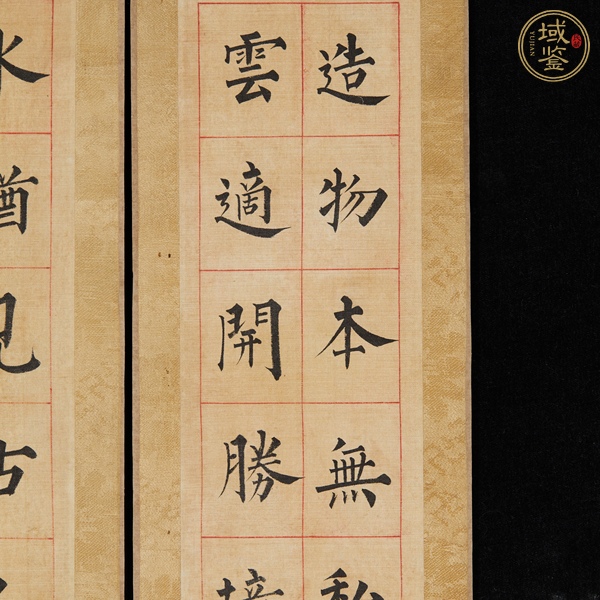 造物本無私
雲適開勝境
水猶見古
域鉴
YUJIAN